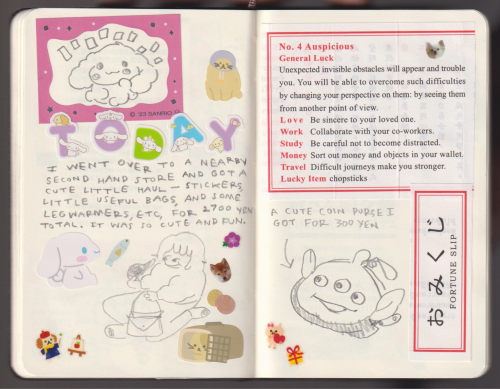 © '23 SANRIO
TODAY
I WENT OVER TO A NEARBY
SECOND HAND STORE AND GOT A
CUTE LITTLE HAUL — STICKERS,
LITTLE USEFUL BAGS, AND SOME
LEGWARMERS, ETC, FOR 2700 YEN
TOTAL. IT WAS SO CUTE AND FUN.
No. 4 Auspicious
General Luck
Unexpected invisible obstacles will appear and trouble
you. You will be able to overcome such difficulties
by changing your perspective on them: by seeing them
from another point of view.
Love Be sincere to your loved one.
Work Collaborate with your co-workers.
Study Be careful not to become distracted.
Money Sort out money and objects in your wallet.
Travel Difficult journeys make you stronger.
Lucky Item chopsticks
A CUTE COIN PURSE I
GOT FOR 300 YEN
おみくじ
FORTUNE SLIP